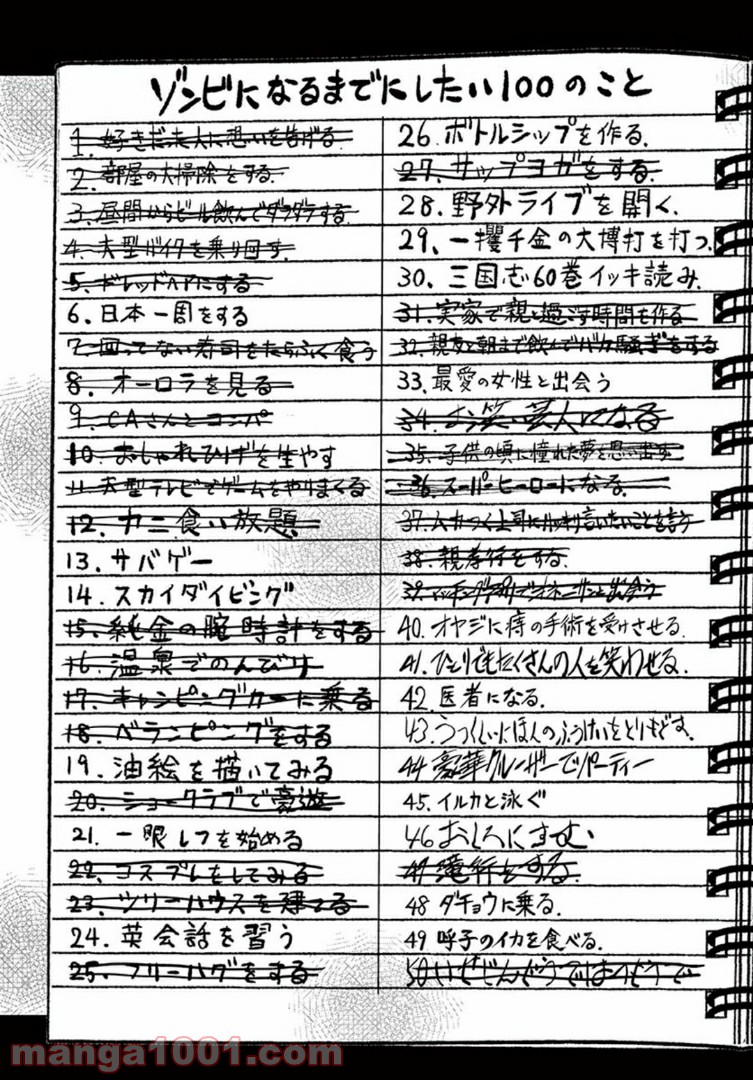 ゾンビになるまでにしたい100のこと
1. 好きだった人に想いを告げる
2. 部屋の大掃除をする.
3. 昼間からビール飲んでダラダラする
4. 大型バイクを乗り回す
5. ドレッドヘアにする
6. 日本一周をする
7. 回ってない寿司をたらふく食う
8. オーロラを見る
9. CAさんとコンパ
10. おしゃれひげを生やす
11. 大型テレビでゲームをやりまくる
12. カニ食い放題
13. サバゲー
14. スカイダイビング
15. 純金の腕時計をする
16. 温泉でのんびり
17. キャンピングカーに乗る
18. ベランピングをする
19. 油絵を描いてみる
20. ショークラブで豪遊
21. 一眼レフを始める
22. コスプレをしてみる
23. ツリーハウスを建てる
24. 英会話を習う
25. フリーハグをする
26. ボトルシップを作る.
27. サップヨガをする.
28. 野外ライブを開く.
29. 一攫千金の大博打を打つ.
30. 三国志60巻イッキ読み.
31. 実家で親と過ごす時間を作る
32. 親友と朝まで飲んでバカ騒ぎをする
33. 最愛の女性と出会う
34. お笑い芸人になる
35. 子供の頃に憧れた夢を思い出す
36. スーパーヒーローになる.
37. ムカつく上司にハッキリ言いたいことを言う
38. 親孝行をする.
39. で と出会う
40. オヤジに痔の手術を受けさせる.
41. ひとりでもたくさんの人を笑わせる.
42. 医者になる.
43. うつくしいにほんのふうけいをとりもどす.
44 豪華クルーザーでパーティー
45. イルカと泳ぐ
46 おしろにすむ
47 をする.
48 ダチョウに乗る.
49 呼子のイカを食べる.
50
manga1001.com